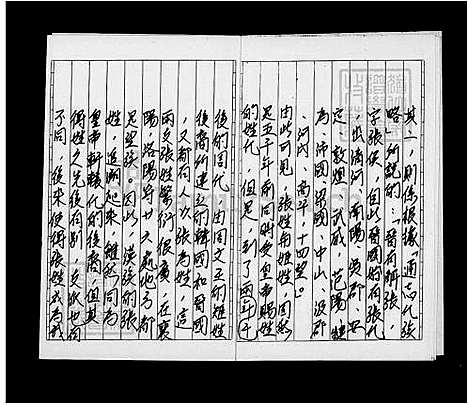 其二,則係根據「通志氏族
略」所說的:「晉有解張,
字張侯,但此晉國的有張氏
,出清河、南陽、吳郡、安
定、敦煌、武威、范陽、犍
為、沛國、梁國、中山、汲郡
、河內、高平,十四望。」
由此可見,張姓與姬姓,固然
是五千年前同時受皇帝賜姓
的姓氏,但是,到了兩千年
後的周代,由周文王的姬姓
後裔所建立的韓國和晉國
,又都有人以張為姓,這
兩支張姓繁衍很廣,在襄
陽、洛陽等廿大處地方都
是望族。因此,漢族的張
姓,追溯起來,雖然同為
皇帝軒轅氏的後裔,但其
得姓之先後有別,支派也有
不同,後來使得張姓成為我